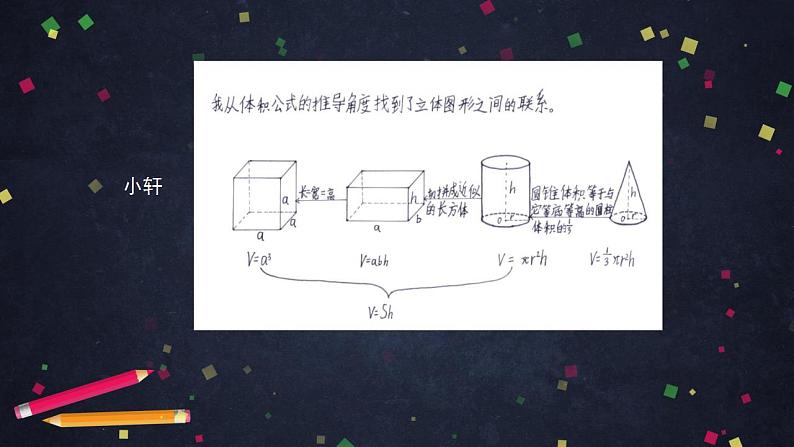 我从体积公式的推导角度找到了立体图形之间的联系。
小轩
a
a
a
长=宽=高
h
b
a
切拼成近似
的长方体
h
o r
圆锥体积等于与
它等底等高的圆柱
体积的1/3
h
o r
V=a³
V=abh
V=πr²h
V=1/3πr²h
V=Sh